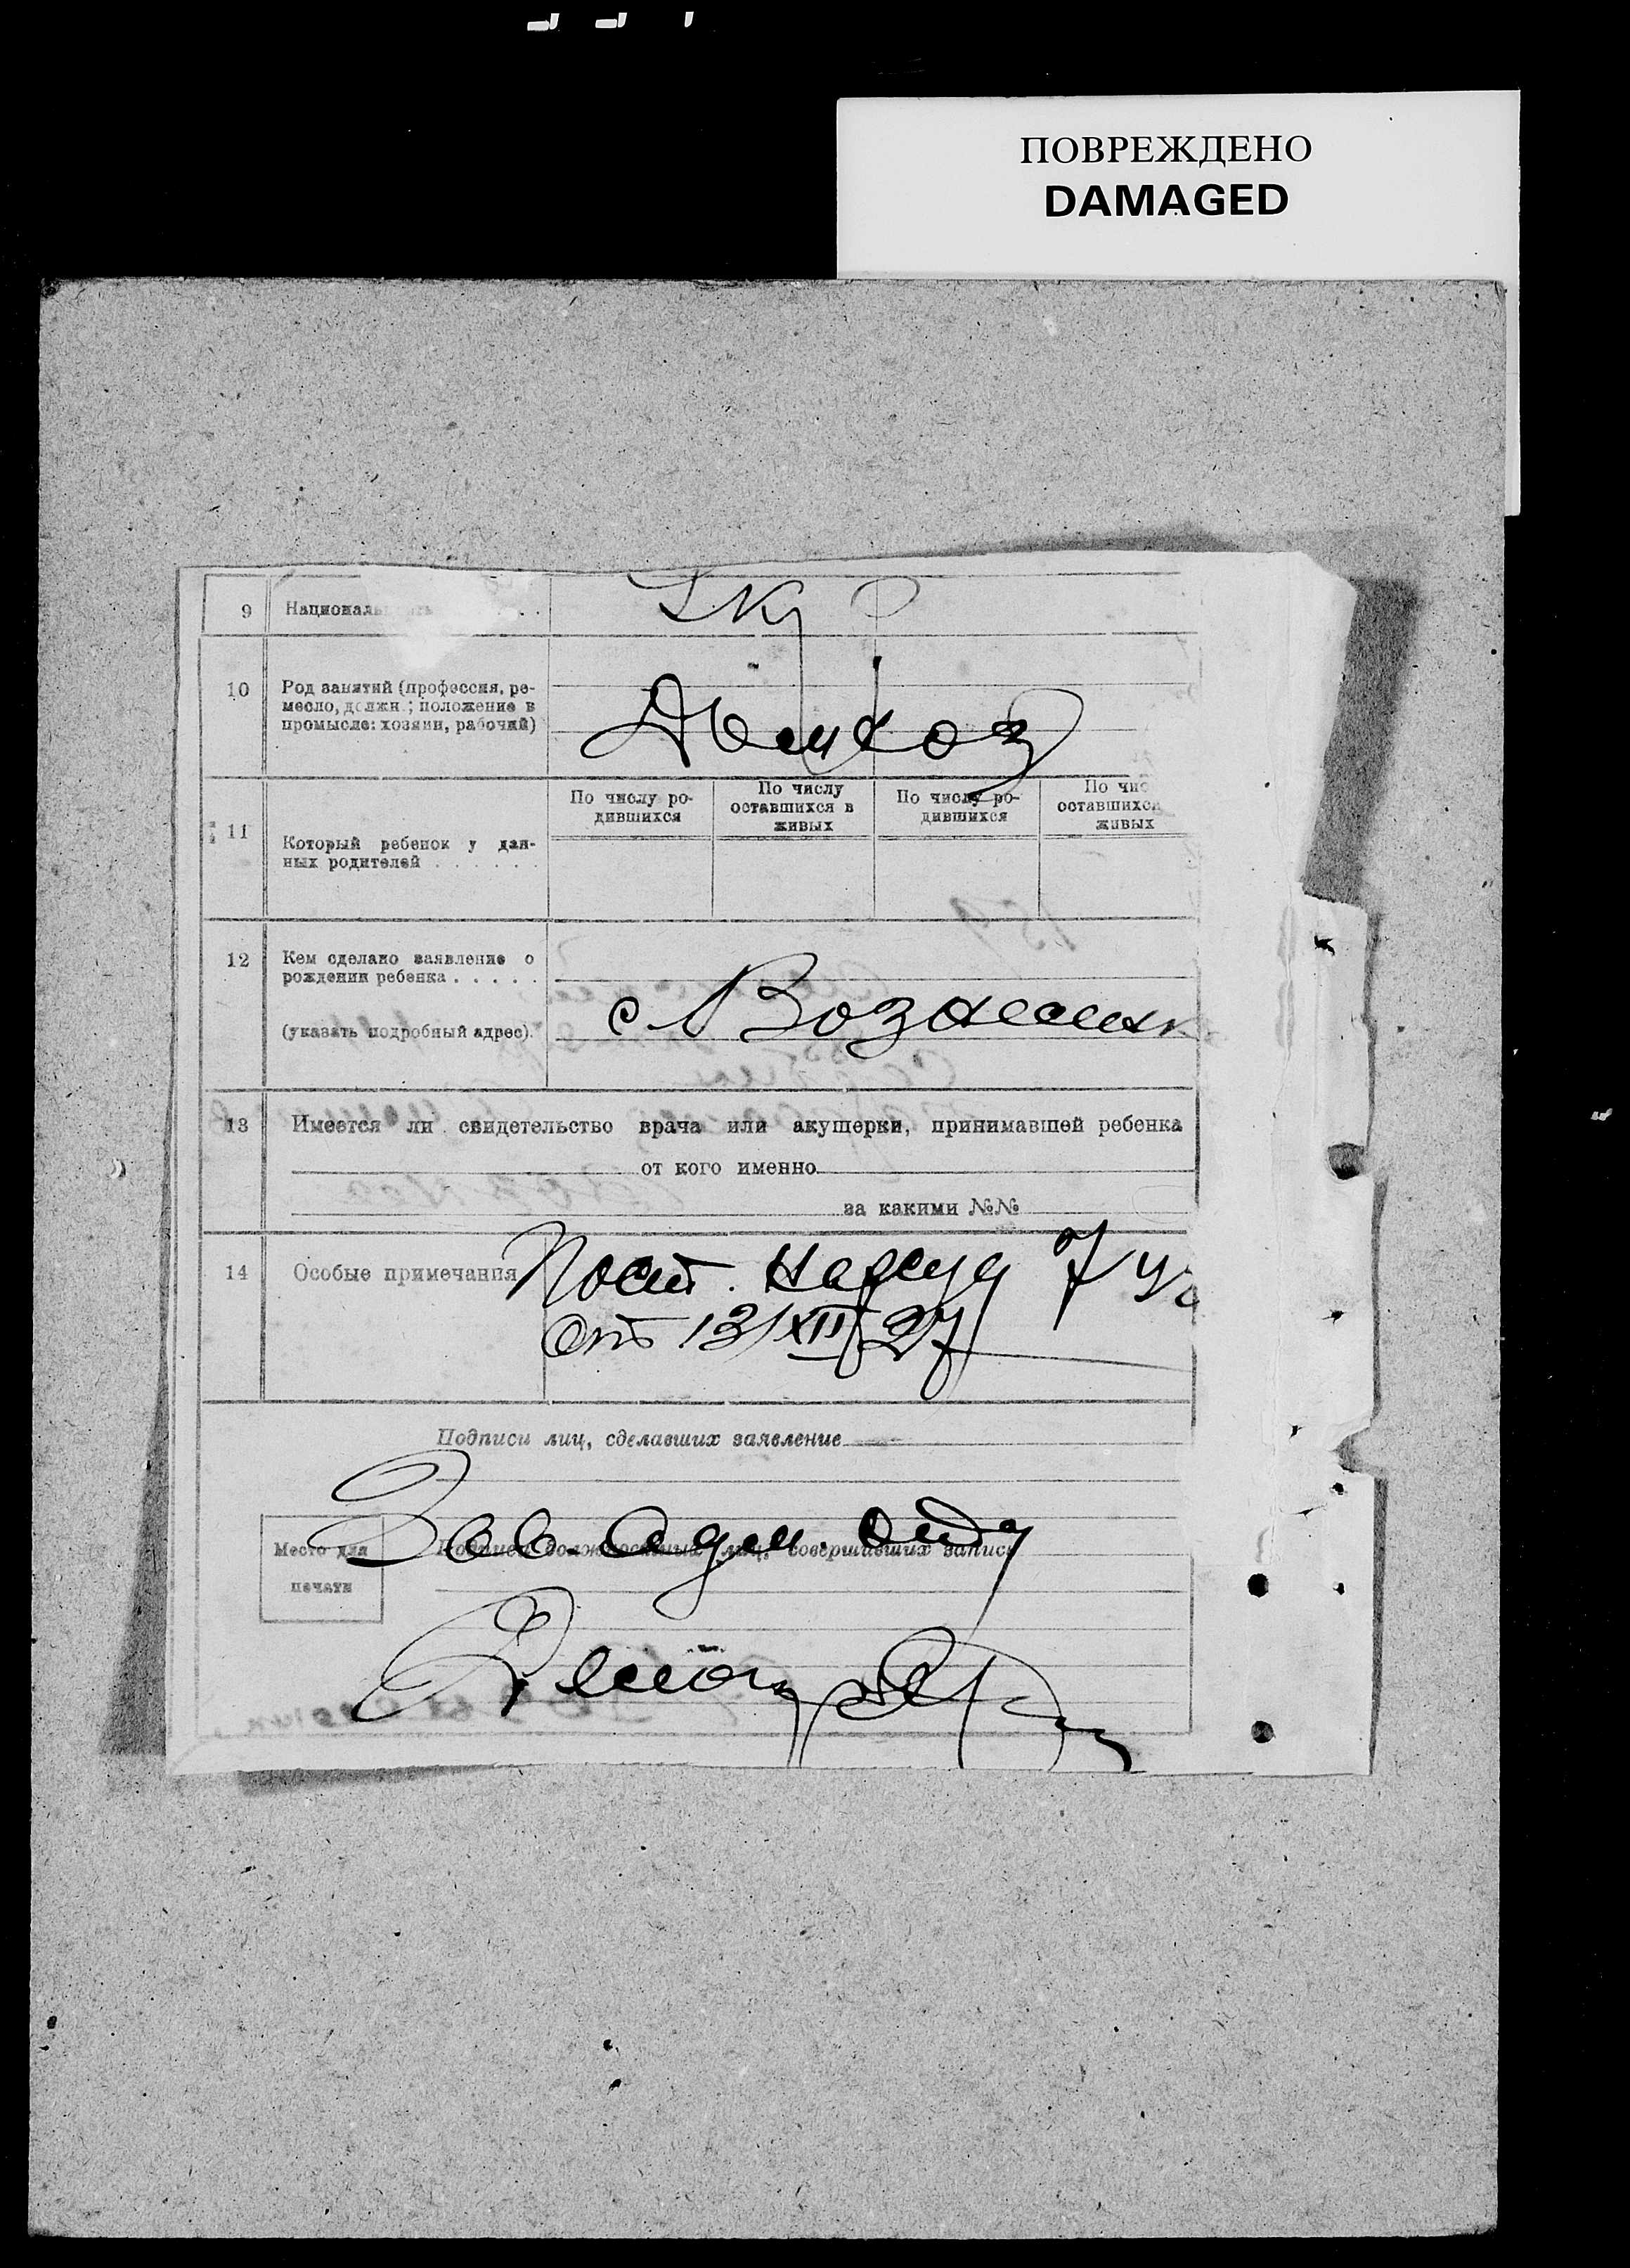 ПОВРЕЖДЕНО
DAMAGED
9 Националь
10 Род занятий (профессия, ре-
месло, должн.; положение в
промысле: хозяин, рабочий)
11 Который ребенок у дан-
ных родителей . . . . . .
По числу ро-
дившихся
По числу
оставшихся в
живых
По числу ро-
дившихся
По чис
оставшихся
живых
12 Кем сделано заявление о
рождении ребенка . . . . .
(указать подробный адрес).
с Вознесенк
13 Имеется ли свидетельство врача или акушерки, принимавшей ребенка
от кого именно
за какими №№
14 Особые примечания
Пост. Нарсуд 7 
От 13/XII/27
Подписи лиц, сделавших заявление
Зав. Адм.
Место для
печати
Подписи должностных лиц, совершивших запись